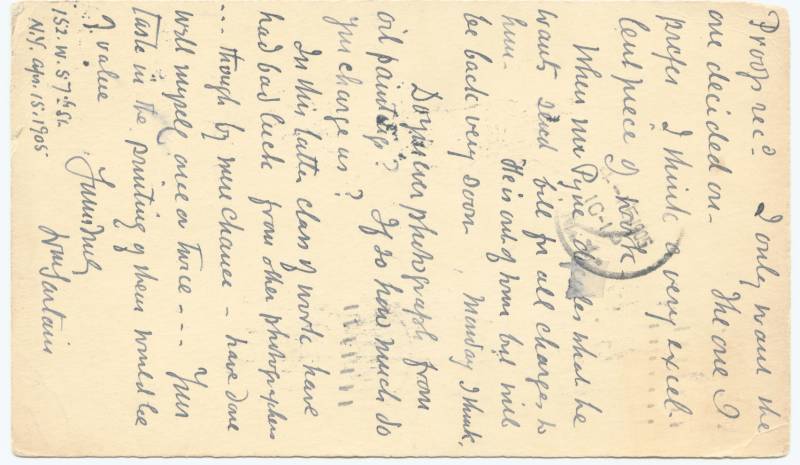 Proofs rec'd. I only want the
one decided on. The one I
prefer I think a very excel-
lent piece of work -
When Mr Pyne decides what he
wants send bill for all charges to
him. He is out of town but will
be back very soon. Monday I think.
Do you ever photograph from
oil paintings? If so how much do
you charge us?
In this latter class of work have
had bad luck from other photographers
--- though by mere chance - have done
well myself once or twice --- Your
taste in the printing of them would be
of value
Yours truly
Wm Sartain
152. W. 57th St.
N.Y. Apr. 15. 1905